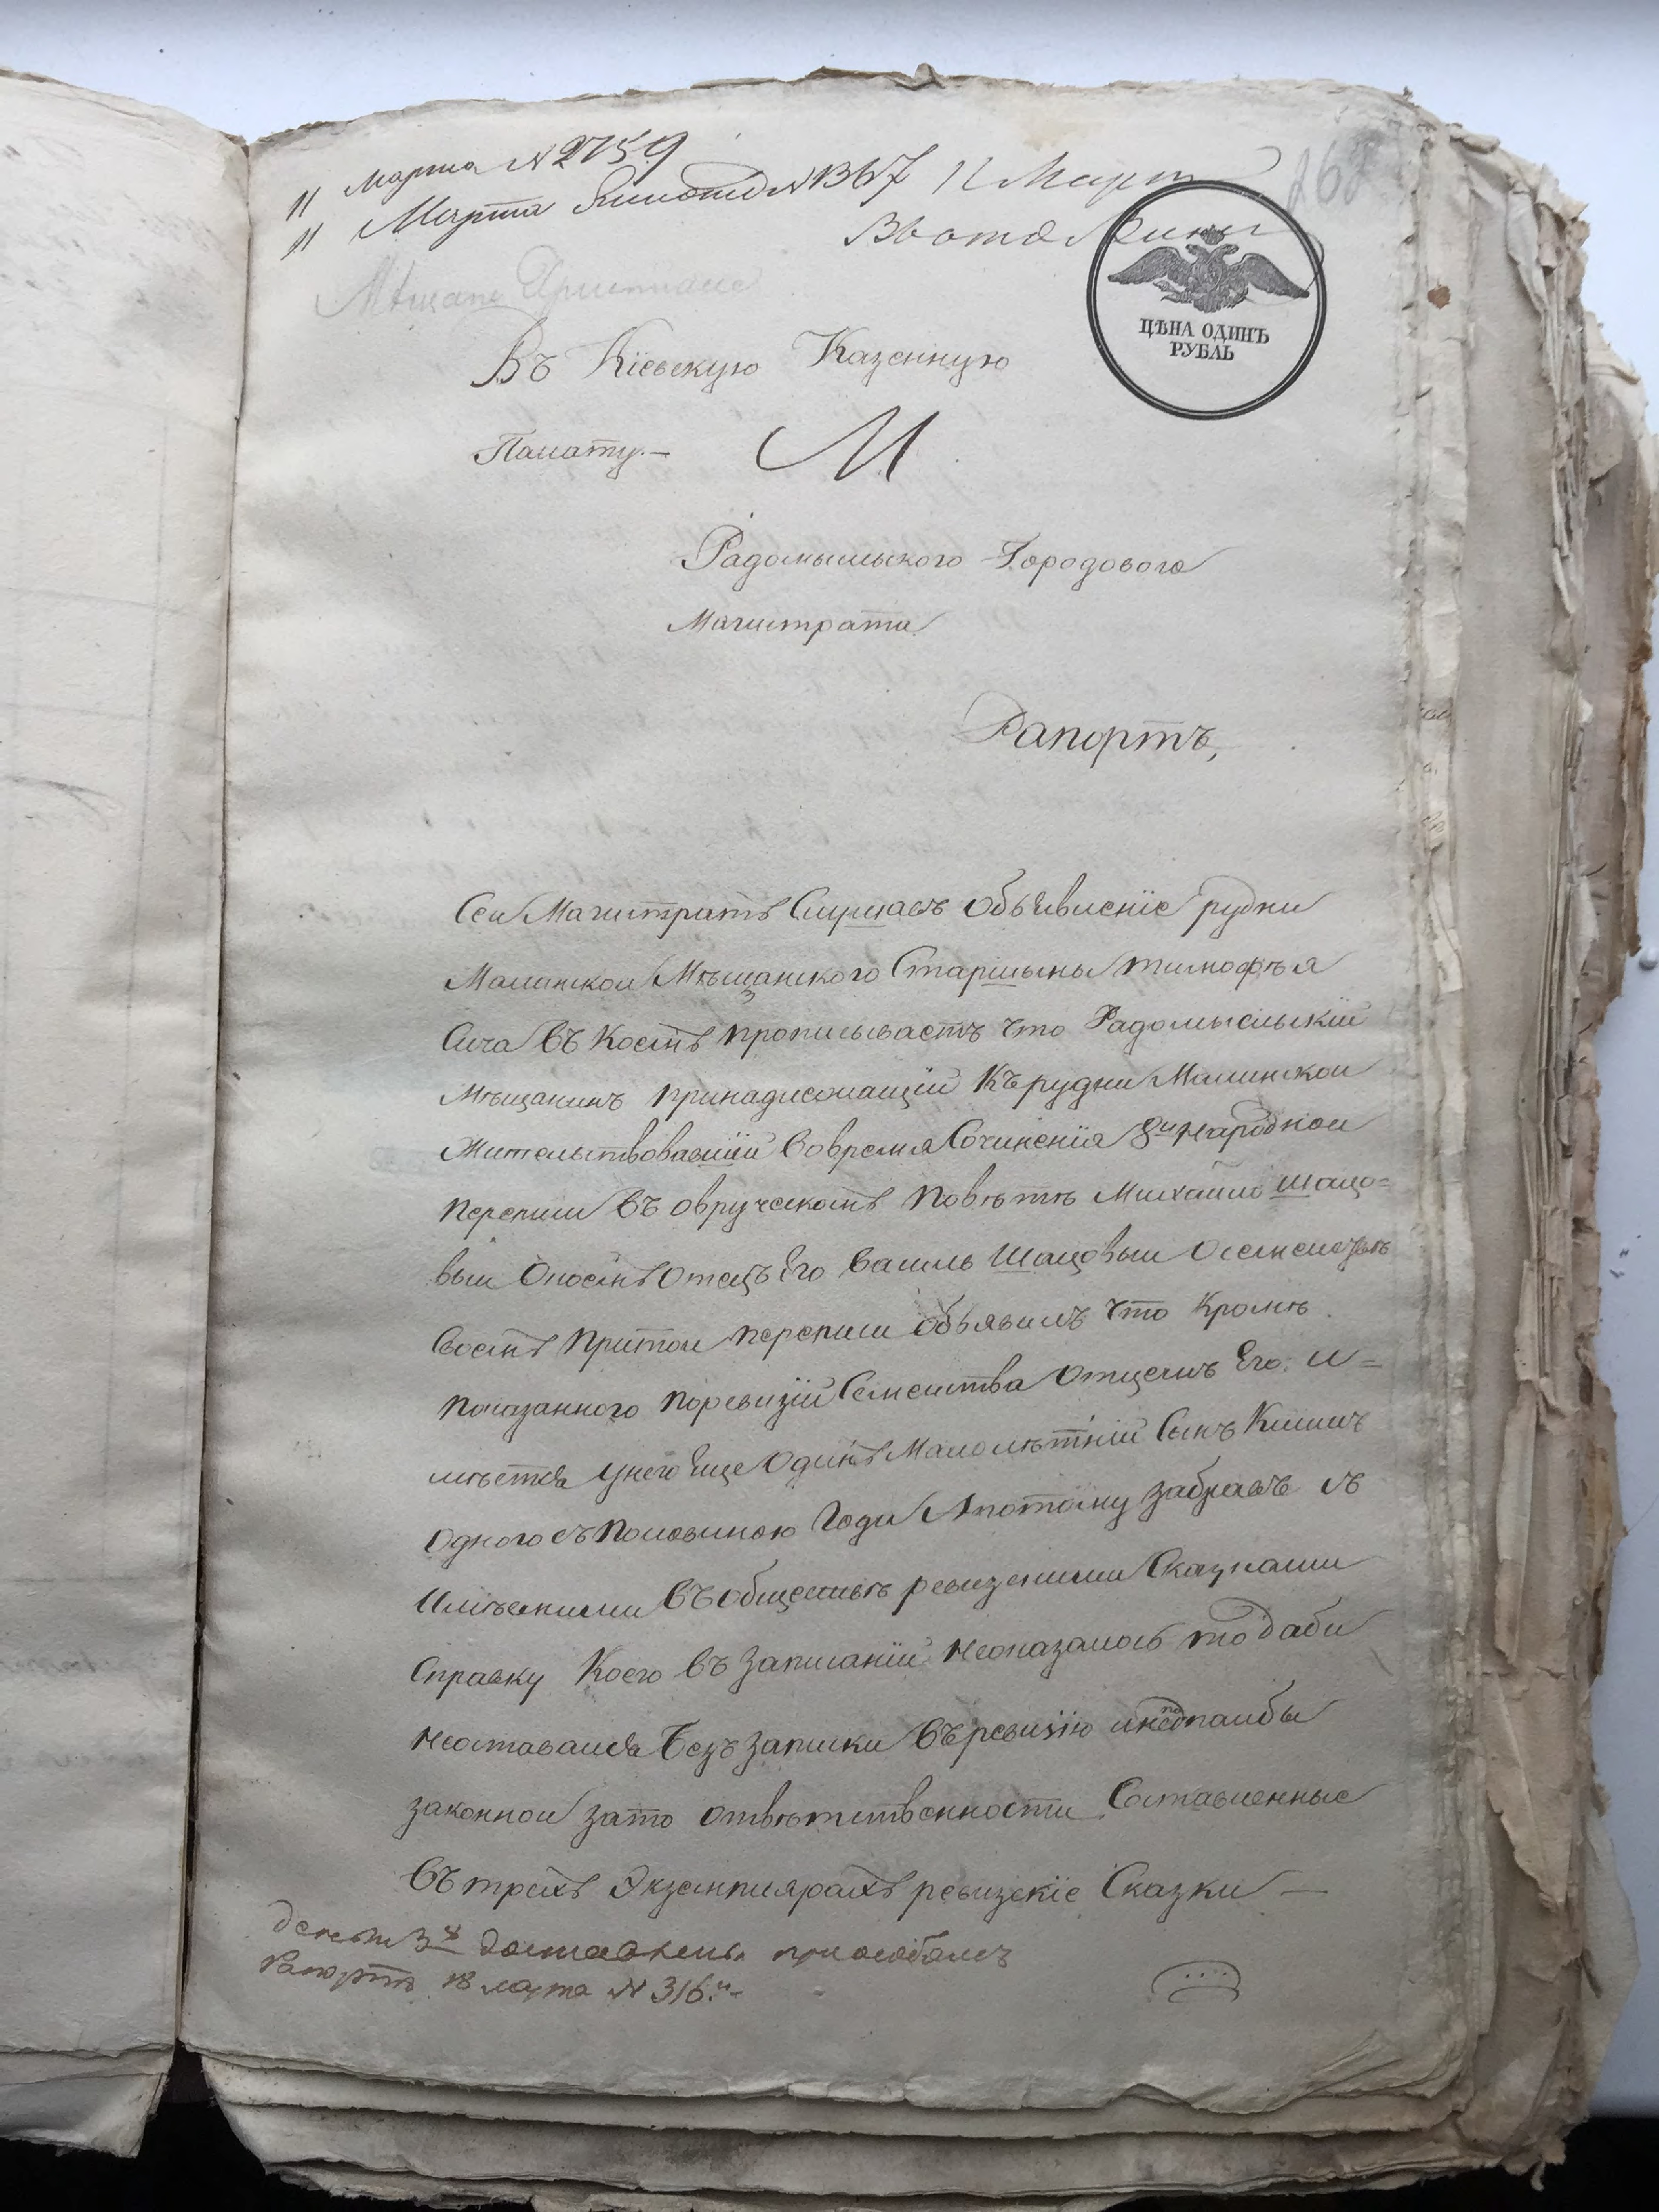 11 Марта N 2759
11 Марта N 1367 11 Март
268
Мѣщане Христиане
ЦѢНА ОДИНЪ
РУБЛЬ
Въ Кіевскую Казенную
Палату.—
Радомысльского Городового
Магистрата
Рапортъ,
Сей Магистратъ Слушавъ Объявленіе рудни
Малинской Мѣщанского Старшыны тимофѣя
Сича въ Коемъ прописываетъ что Радомысльскій
Мѣщанинъ принадлежащій Къ рудни Малинской
Жительствовавшій Вовремя Сочиненія 8й народной
переписи въ овручскомъ повѣтѣ Михайло шацо=
вый Окоемъ Отецъ Его василь Шацовый Осемействѣ
Своемъ притой переписи объявилъ что Кромѣ
показанного поревизіи Семейства Отцемъ Его. и=
мѣется Унего Еще Одинъ Малолѣтній Сынъ Климъ
Одного съ половиною Года Апотому забравъ съ
Имѣемыми въ обществѣ ревизкими Сказками
Справку Коего въ Записаніи неоказалось то дабы
неоставался безъ записки въ ревизію инеподпалбы
законной зато отвѣтственности Составленные
въ трехъ Экземплярахъ ревизскіе Сказки —
3х доставлены при особомъ
Рапортѣ 18 марта N 316.